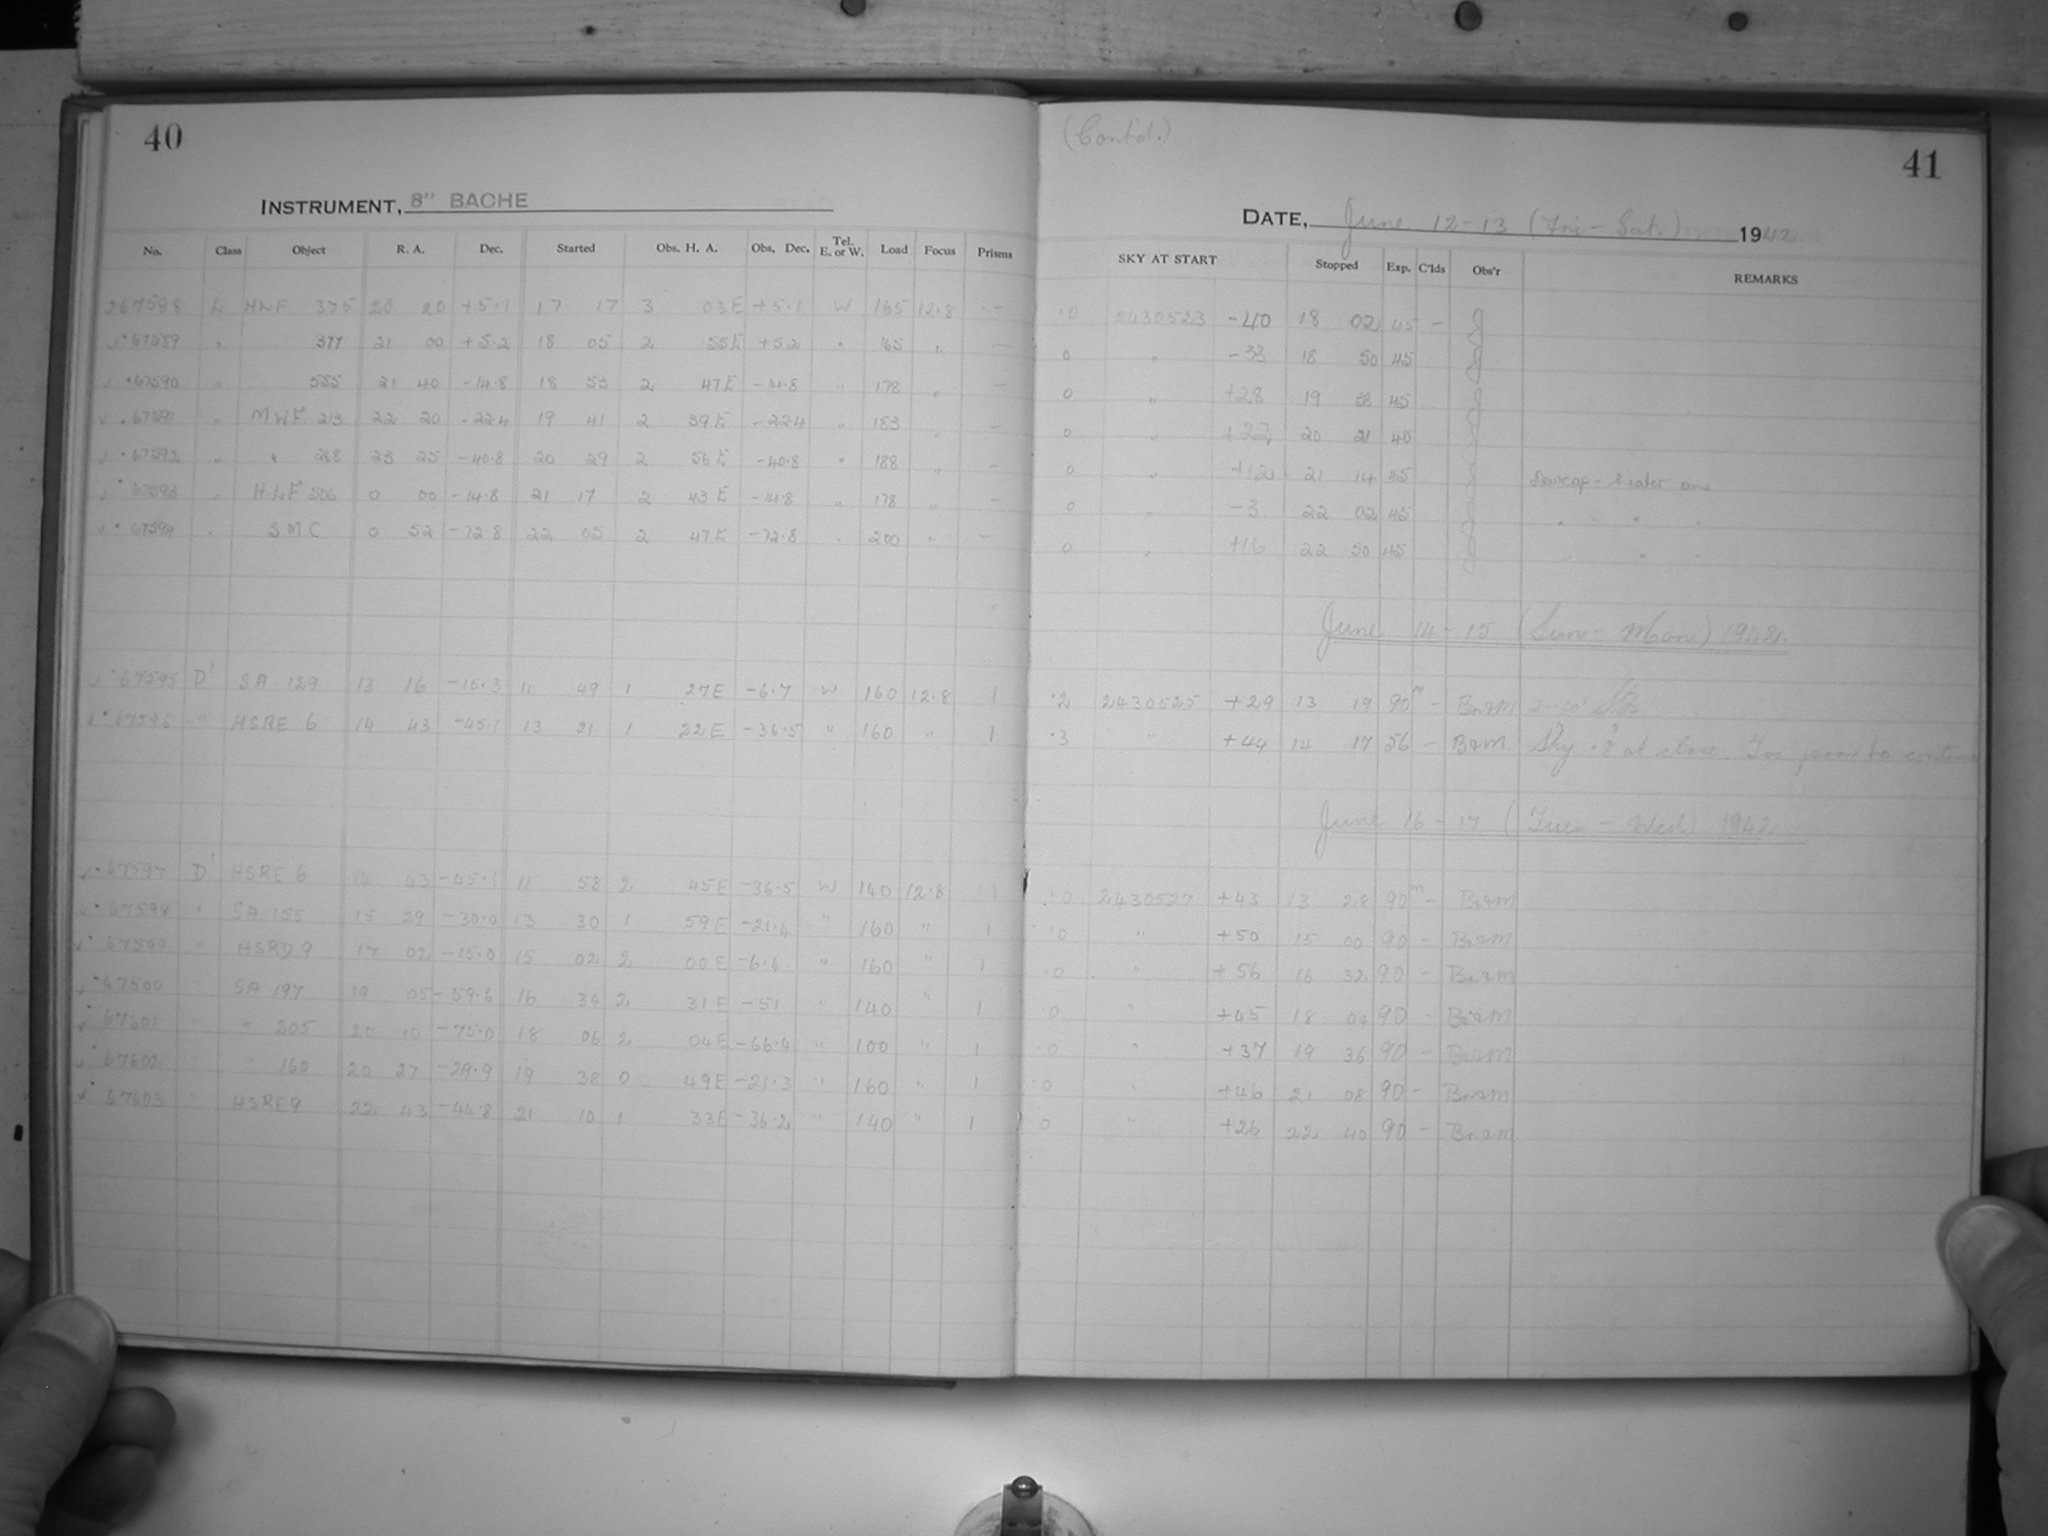 40
INSTRUMENT, 8" BACHE
No. Class Object R. A. Dec. Started Obs. H. A. Obs. Dec. Tel. E. or W. Load Focus Prisms
67588 L HLF 375 20 20 +5.1 17 17 3 03E +5.1 W 165 12.8 —
67589 " 377 21 00 +5.2 18 05 2 55E +5.2 " 165 " —
67590 " 555 21 40 -14.8 18 53 2 47E -14.8 " 178 " —
67591 " MWF 213 22 20 -22.4 19 41 2 39E -22.4 " 183 " —
67592 " " 268 23 25 -40.8 20 29 2 56E -40.8 " 188 " —
67593 " HLF 506 0 00 -14.8 21 17 2 43E -14.8 " 178 " —
67594 " SMC 0 52 -72.8 22 05 2 47E -72.8 " 200 " —
67595 D' SA 129 13 16 -15.3 11 49 1 27E -6.7 W 160 12.8 1
67596 " HSRE 6 14 43 -45.1 13 21 1 22E -36.5 " 160 " 1
67597 D' HSRE 6 14 43 -45.1 11 58 2 45E -36.5 W 140 12.8 1
67598 " SA 155 15 29 -30.0 13 30 1 59E -21.4 " 160 " 1
67599 " HSRD 9 17 02 -15.0 15 02 2 00E -6.4 " 160 " 1
67600 " SA 197 19 05 -59.6 16 34 2 31E -51 " 140 " 1
67601 " " 205 20 10 -75.0 18 06 2 04E -66.4 " 100 " 1
67602 " " 160 20 27 -29.9 19 38 0 49E -21.3 " 160 " 1
67603 " HSRE 9 22 43 -44.8 21 10 1 33E -36.2 " 140 " 1
(Cont'd.)
41
DATE, June 12-13 (Fri - Sat.) 1942
SKY AT START Stopped Exp. C'lds Obs'r REMARKS
.0 2430523 -40 18 02 45 — J
0 " -33 18 50 45 J
0 " +28 19 38 45 J
0 " +22 20 21 40 J
0 " +12 21 14 45 J Dewcap-heater on
0 " -3 22 02 45 J " " "
0 " +16 22 50 45 J " " "
June 14-15 (Sun - Mon) 1942.
.2 2430525 +29 13 19 90m — BoaM
.3 " +44 14 17 56 — BoaM Sky .8 at close. Too poor to continue
June 16-17 (Tues - Wed) 1942
.0 2430527 +43 13 28 90m — BoaM
.0 " +50 15 00 90 — BoaM
.0 " +56 16 32 90 — BoaM
.0 " +45 18 04 90 — BoaM
.0 " +37 19 36 90 — BoaM
.0 " +46 21 08 90 — BoaM
.0 " +26 22 40 90 — BoaM